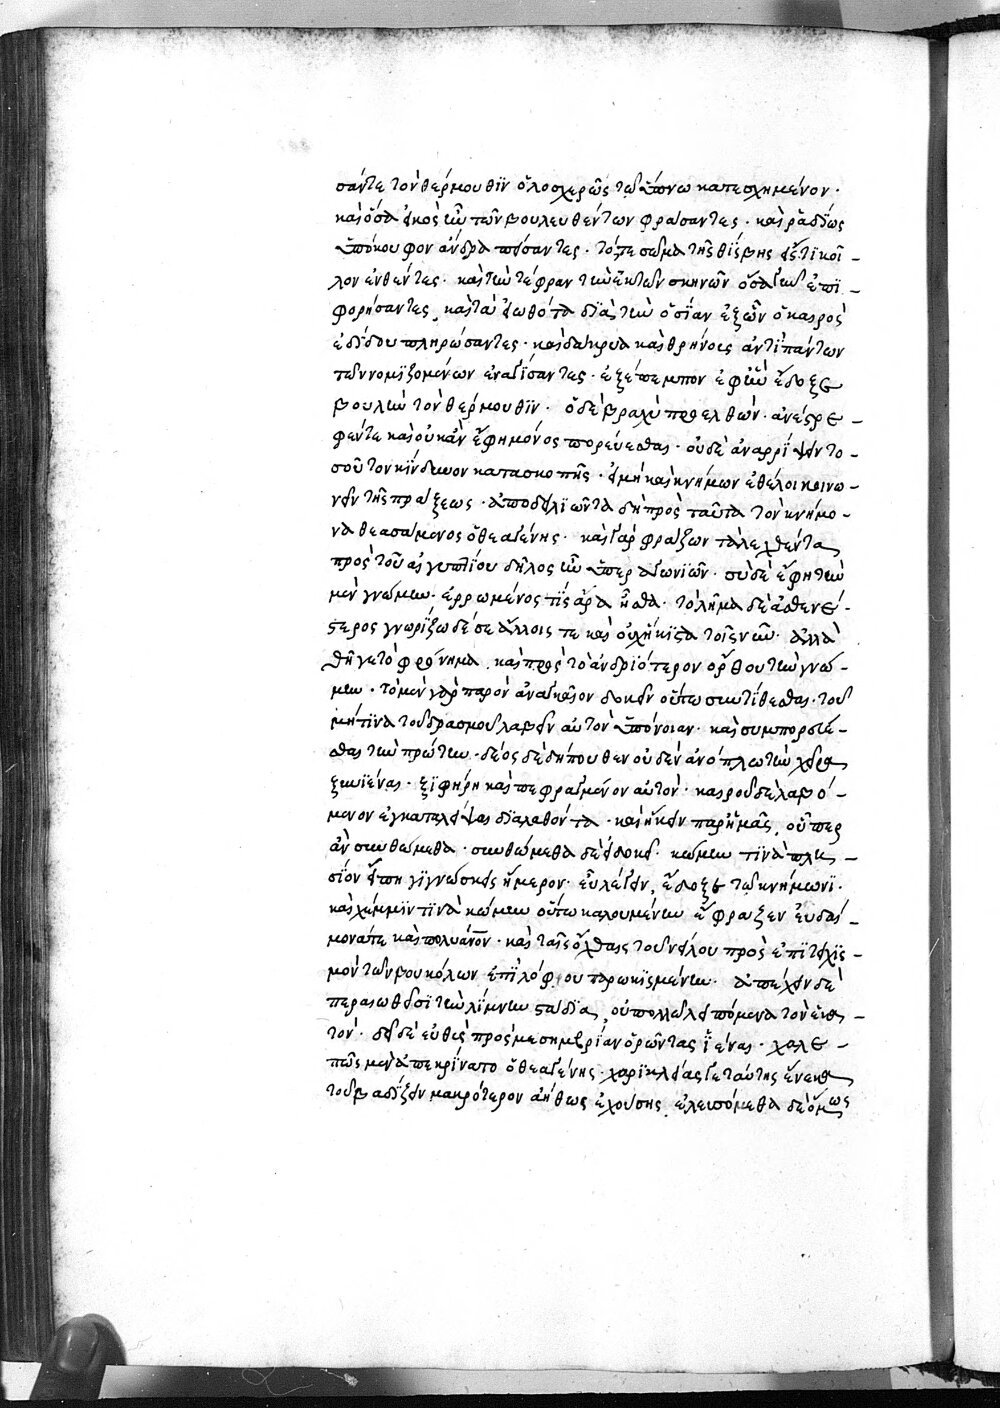 σάντε τὸν θέρμουθϊν ὁλοσχερῶς τῶ ὕπνω κατεσχημένον·
καὶ ὅσα εἰκὸς ἦν τῶν βουλευθέντων φράσαντες· καὶ ῥαδίως
ὑπόκουφον ἄνδρα πείσαντες· τότε σῶμα τῆς θίσβης εἴς τι κοῖ-
λον ἐνθέντες· καὶ τὴν τέφραν τὴν ἐκ τῶν σκηνῶν ὅσα γῆν ἐπι-
φορήσαντες, καὶ τὰ εἰωθότα διὰ τὴν ὁσΐαν ἐξ ὧν ὁ καιρὸς
ἐδίδου πληρώσαντες· καὶ δάκρυα καὶ θρήνους ἀντὶ πάντων
τῶν νομιζομένων ἐναγίσαντες· ἐξέπεμπον ἐφ' ἣν ἔδοξε
βουλὴν τὸν θέρμουθϊν· ὁ δὲ βραχὺ προελθὼν· ἀνέστρε-
φέν τε καὶ οὐκ ἂν ἔφη μόνος πορεύεσθαι· οὐδὲ ἀναρρίψειν το-
σοῦτον κίνδυνον κατασκοπῆς· εἰ μὴ καὶ κνήμων ἐθέλοι κοινω-
νεῖν τῆς πράξεως· ἀποδειλιῶντα δὴ πρὸς ταῦτα τὸν κνήμο-
να θεασάμενος ὁ θεαγένης· καὶ γὰρ φράζων τὰ λεχθέντα
πρὸς τοῦ αἰγυπτίου δῆλος ἦν ὑπεραγωνιῶν· σὺ δὲ ἔφη τὴν
μὲν γνώμην· ἐρρωμένος τὶς ἄρα ἦσθα· τὸ λῆμα δὲ ἀσθενέ-
στερος γνωρίζω δέ σε ἄλλοις τε καὶ οὐχ ἥκιστα τοῖς νῦν· ἀλλὰ
θῆγε τὸ φρόνημα, καὶ πρὸς τὸ ἀνδρϊότερον ὄρθου τὴν γνώ-
μην· τὸ μὲν γὰρ παρὸν ἀναγκαῖον δοκεῖν οὕτω συντίθεσθαι· τοῦ
μή τϊνα τοῦ δρασμοῦ λαβεῖν αὐτὸν ὑπόνοιαν· καὶ συμπορεύε-
σθαι τὴν πρώτην· δέος δὲ δήπουθεν οὐδὲν ἀνόπλω τὴν χεῖρα
ξυνϊέναι· ξιφήρη καὶ πεφραγμένον αὐτὸν· καιροῦ δὲ λαβό-
μενον ἐγκαταλεῖψαι δϊαλαθόντα· καὶ ἥκειν παρ' ἡμᾶς, οὗπερ
ἂν συνθώμεθα· συνθώμεθα δὲ εἰ δοκεῖ· κώμην τϊνὰ πλη-
σΐον εἴ πη γϊγνώσκεις ἥμερον· εὖ λέγειν, ἔδοξε τῶ κνήμωνϊ·
καὶ χέμμϊν τϊνὰ κώμην οὕτω καλουμένην ἔφραζεν εὐδαί-
μονά τε καὶ πολυάνον· καὶ ταῖς ὄχθαις τοῦ νείλου πρὸς ἐπιτειχϊς-
μὸν τῶν βουκόλων ἐπϊ λόφου παρωκϊσμένην· ἀπέχειν δὲ
περαιωθεῖσϊ τὴν λίμνην στάδϊα, οὐ πολλῶ λειπόμενα τῶν ἑκα-
τόν· δεῖ δὲ εὐθὺς πρὸς μεσημβρίαν ὁρῶντας ἰέναι· χαλε-
πῶς μὲν ἀπεκρίνατο ὁ θεαγένης· χαρϊκλείας γε ταύτης ἕνεκα
τοῦ βαδίζειν μακρότερον ἀήθως ἐχούσης, ἐλευσόμεθα δὲ ὅμως